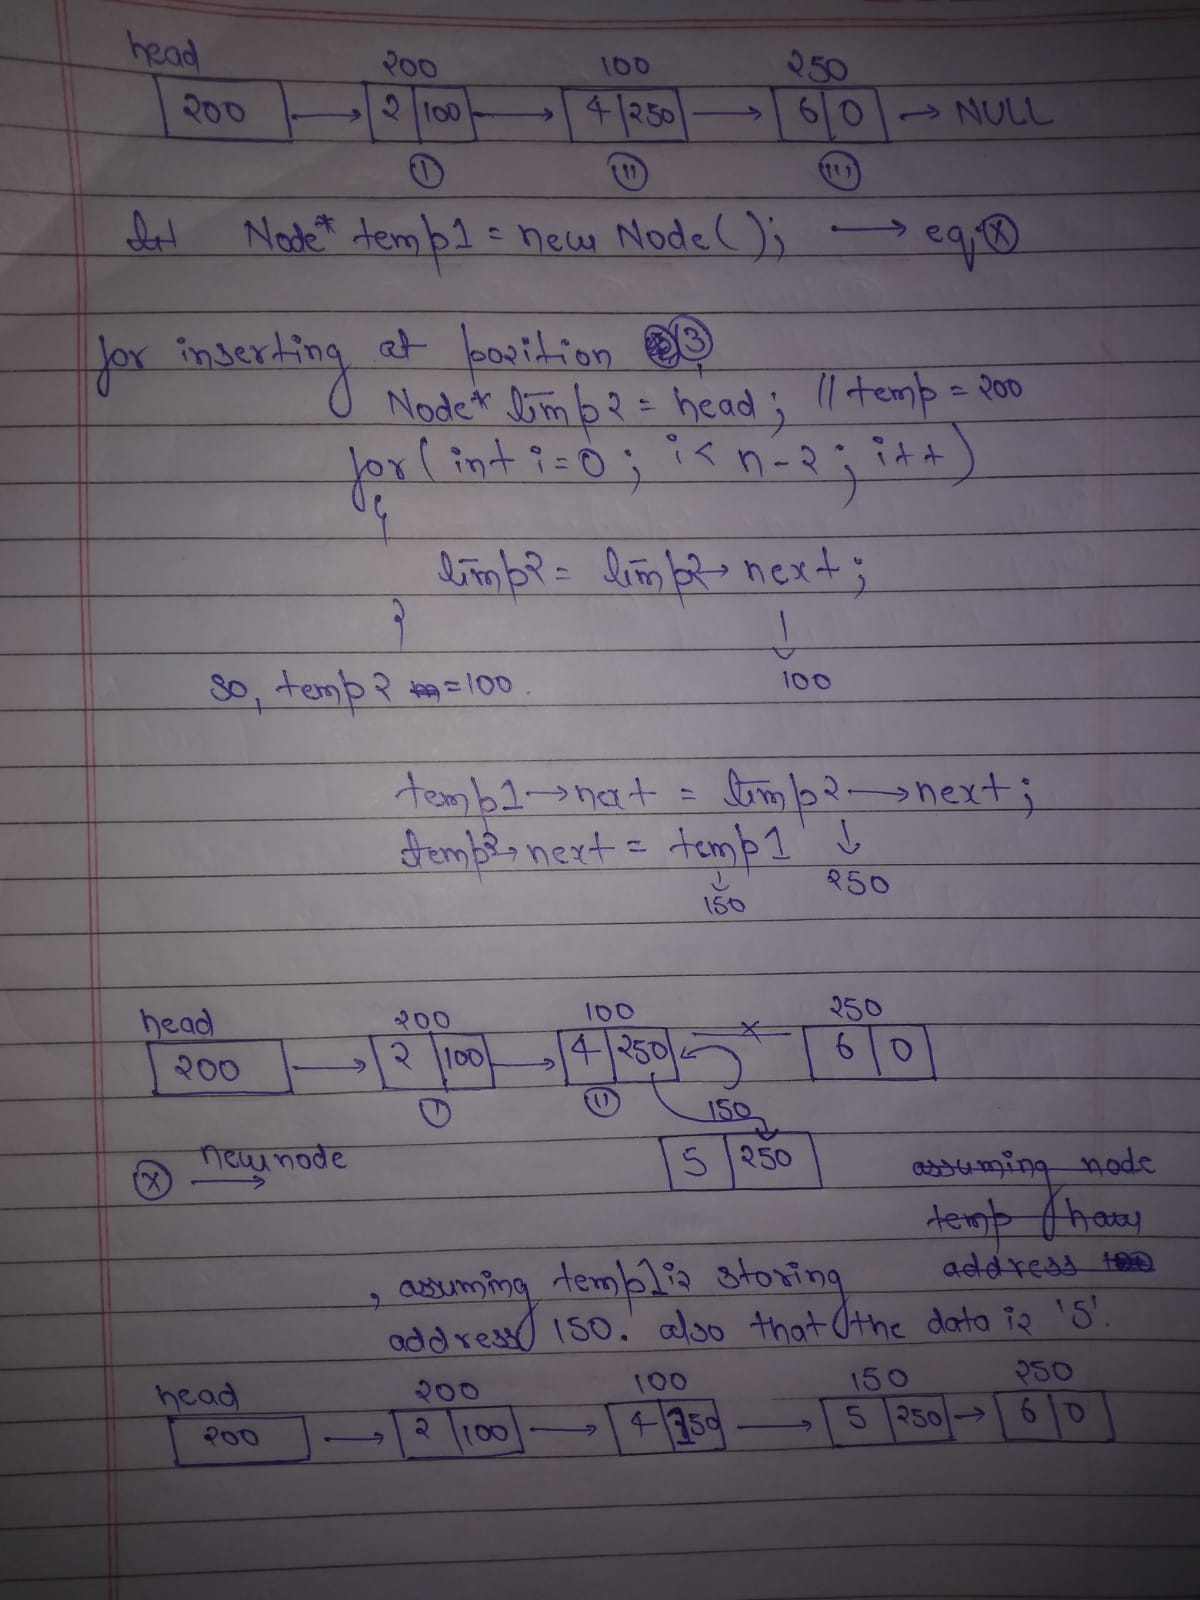 head 200 100 250
200 → 2 | 100 → 4 | 250 → 6 | 0 → NULL
(i) (ii) (iii)
let Node* temp1 = new Node(); → eq (x)
for inserting at position (3)
Node* temp2 = head; // temp = 200
for(int i=0; i< n-2; i++)
{
temp2 = temp2→ next;
}
↓
100
so, temp2 = 100.
temp1→next = temp2→next;
temp2→next = temp1 ↓
↓ 250
150
head 200 100 250
200 → 2 | 100 → 4 | 250 x 6 | 0
(i) (ii) 150
(x) newnode → 5 | 250 assuming node
temp
address
, assuming temp1 is storing
address 150. also that the data is '5'.
head 200 100 150 250
200 → 2 | 100 → 4 | 150 → 5 | 250 → 6 | 0